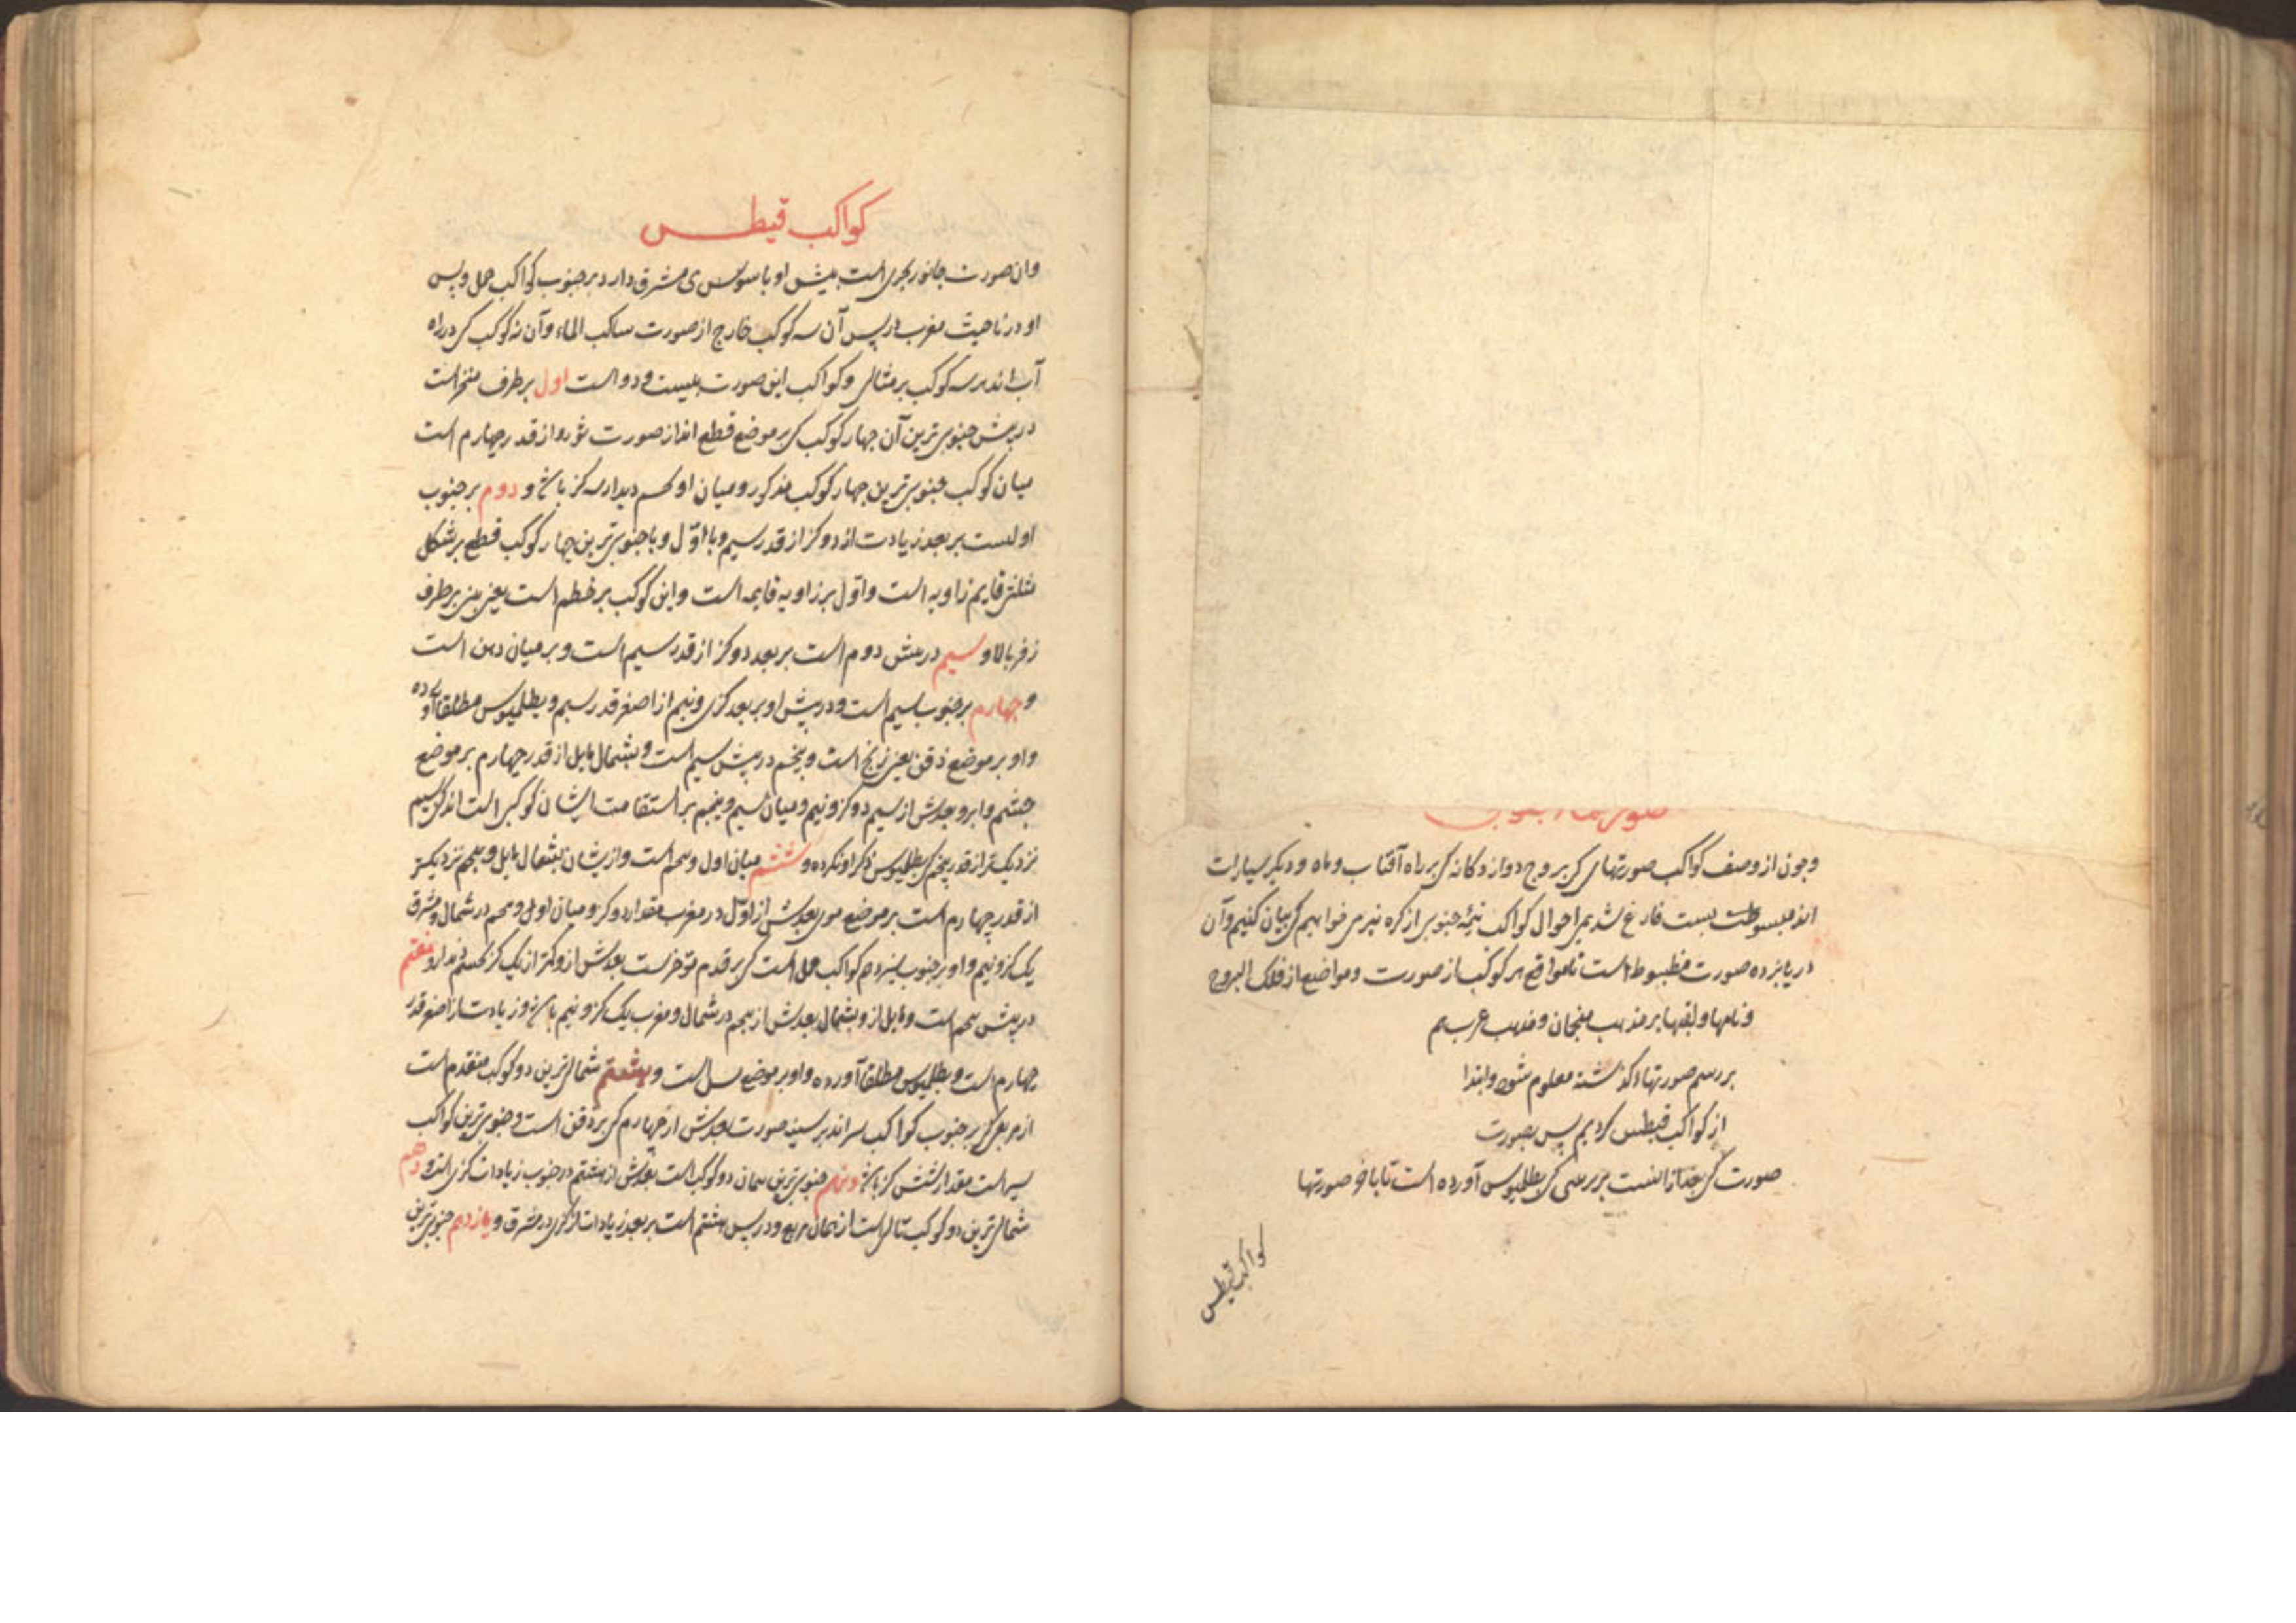 صورتهاء جنوبی
وچون از وصف کواکب صورتهای کی بروج دوازدکانه کی بر راه آفتاب وماه ودیکر سیارات
فارغ شدیم احوال کواکب نیمهٔ جنوبی از کره نیز می خواهیم کی بیان کنیم وآن
در پانزده صورت مظبوط است تا مواقع هر کوکب از صورت ومواضع از فلک البروج
ونامها ولقبها بر مذهب منجمان ومذهب عرب هم
بر رسم صورتهاء کذشته معلوم شود وابتدا
از کواکب قیطس کردیم پس بصورت
صورت کی بعد ازانست بر رسمی کی بطلمیوس آورده است تا باخر صورتها
کواکب قیطس
کواکب قیطس
وان صورت جانور بحری است پیش او با سوی مشرق دارد بر جنوب کواکب حمل وپس
او در ناحیت مغرب در پس آن سه کوکب خارج از صورت ساکب الماء وآن نه کوکب کی در راه
آب اند سه کوکب بر مثالی وکواکب این صورت بیست ودو است اول بر طرف منخر است
در پیش جنوبی ترین آن چهار کوکب کی بر موضع قطع اند از صورت ثور واز قدر چهارم است
میان کوکب جنوبی ترین چهار کوکب مذکور ومیان او بحسب دیدار سه کز باشد ودوم بر جنوب
اولست بر بعد زیادت از دو کز از قدر سیم وبا اوّل وبا جنوبی ترین چهار کوکب قطع بر شکل
مثلثی قایم زاویه است واوّل بر زاویه قایمه است واین کوکب بر خطم است یعنی بینی بر طرف
زفر بالا وسیم در پیش دوم است بر بعد دو کز از قدر سیم است وبر میان دهن است
وچهارم بر جنوب سیم است ودر پیش او بر بعد کزی ونیم از اصغر قدر سیم وبطلمیوس مطلقا آورده
واو بر موضع ذقن یعنی زنخ است وپنجم در پیش سیم است وبشمال مایل از قدر چهارم بر موضع
چشم وابرو بعدش از سیم دو کز ونیم ومیان سیم وپنجم بر استقامت ایشان کوکبی است اندکی بسیم
نزدیکتر از قدر پنجم کی بطلمیوس ذکر او نکرده وششم میان اول وپنجم است وازیشان بشمال مایل وبپنجم نزدیکتر
از قدر چهارم است بر موضع موی بعدش از اوّل در مغرب مقدار دو کز ومیان اول وپنجم در شمال ومشرق
یک کز ونیم واو بر جنوب سیزدهم کواکب حمل است کی بر قدم مؤخرست بعدش ازو کمتر از یک کز وهفتم
در پیش پنجم است ومایل ازو بشمال بعدش از پنجم در شمال ومغرب یک کز ونیم باشد وزیادت از اصغر قدر
چهارم است وبطلمیوس مطلقا آورده واو بر موضع یال است وهشتم شمالی ترین دو کوکب متقدم است
از مربعی کی بر جنوب کواکب سر اند بر سینه صورت بعدش از چهارم کی بر ذقن است وجنوبی ترین کواکب
سر است مقدار شش کز باشد ونهم جنوبی ترین همان دو کوکب است بعدش از هشتم در جنوب زیادت از کزی است ودهم
شمالی ترین دو کوکب تالی است از همان مربع ودر پس هشتم است بر بعد زیادت از کزی در مشرق ویازدهم جنوبی ترین